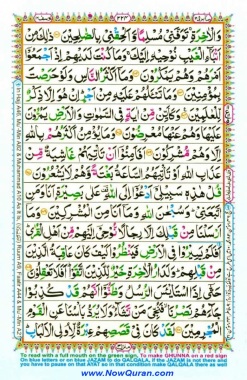 ٢٢٣
وَالْاٰخِرَةِ تَوَفَّنِيْ مُسْلِمًا وَّاَلْحِقْنِيْ بِالصّٰلِحِيْنَ ذٰلِكَ مِنْ
اَنْۢبَآءِ الْغَيْبِ نُوْحِيْهِ اِلَيْكَ وَمَا كُنْتَ لَدَيْهِمْ اِذْ اَجْمَعُوْٓا
اَمْرَهُمْ وَهُمْ يَمْكُرُوْنَ وَمَآ اَكْثَرُ النَّاسِ وَلَوْ حَرَصْتَ
بِمُؤْمِنِيْنَ وَمَا تَسْـَٔلُهُمْ عَلَيْهِ مِنْ اَجْرٍ اِنْ هُوَ اِلَّا ذِكْرٌ
لِّلْعٰلَمِيْنَ وَكَاَيِّنْ مِّنْ اٰيَةٍ فِي السَّمٰوٰتِ وَالْاَرْضِ يَمُرُّوْنَ
عَلَيْهَا وَهُمْ عَنْهَا مُعْرِضُوْنَ وَمَا يُؤْمِنُ اَكْثَرُهُمْ بِاللّٰهِ
اِلَّا وَهُمْ مُّشْرِكُوْنَ اَفَاَمِنُوْٓا اَنْ تَاْتِيَهُمْ غَاشِيَةٌ مِّنْ
عَذَابِ اللّٰهِ اَوْ تَاْتِيَهُمُ السَّاعَةُ بَغْتَةً وَّهُمْ لَا يَشْعُرُوْنَ
قُلْ هٰذِهٖ سَبِيْلِيْٓ اَدْعُوْٓا اِلَى اللّٰهِ عَلٰى بَصِيْرَةٍ اَنَا وَمَنِ
اتَّبَعَنِيْ وَسُبْحٰنَ اللّٰهِ وَمَآ اَنَا مِنَ الْمُشْرِكِيْنَ وَمَآ
اَرْسَلْنَا مِنْ قَبْلِكَ اِلَّا رِجَالًا نُّوْحِيْٓ اِلَيْهِمْ مِّنْ اَهْلِ الْقُرٰى
اَفَلَمْ يَسِيْرُوْا فِي الْاَرْضِ فَيَنْظُرُوْا كَيْفَ كَانَ عَاقِبَةُ الَّذِيْنَ
مِنْ قَبْلِهِمْ وَلَدَارُ الْاٰخِرَةِ خَيْرٌ لِّلَّذِيْنَ اتَّقَوْا اَفَلَا تَعْقِلُوْنَ
حَتّٰٓى اِذَا اسْتَيْـَٔسَ الرُّسُلُ وَظَنُّوْٓا اَنَّهُمْ قَدْ كُذِبُوْا
جَآءَهُمْ نَصْرُنَا فَنُجِّيَ مَنْ نَّشَآءُ وَلَا يُرَدُّ بَاْسُنَا عَنِ الْقَوْمِ
الْمُجْرِمِيْنَ لَقَدْ كَانَ فِيْ قَصَصِهِمْ عِبْرَةٌ لِّاُولِي الْاَلْبَابِ
To read with a full mouth on the green sign, To make GHUNNA on a red sign
On blue letters or on blue JAZAM to do QALQALA, if the JAZAM is not there and
you have to pause on that AYAT so in that condition make QALQALA there as well
www.NowQuran.com